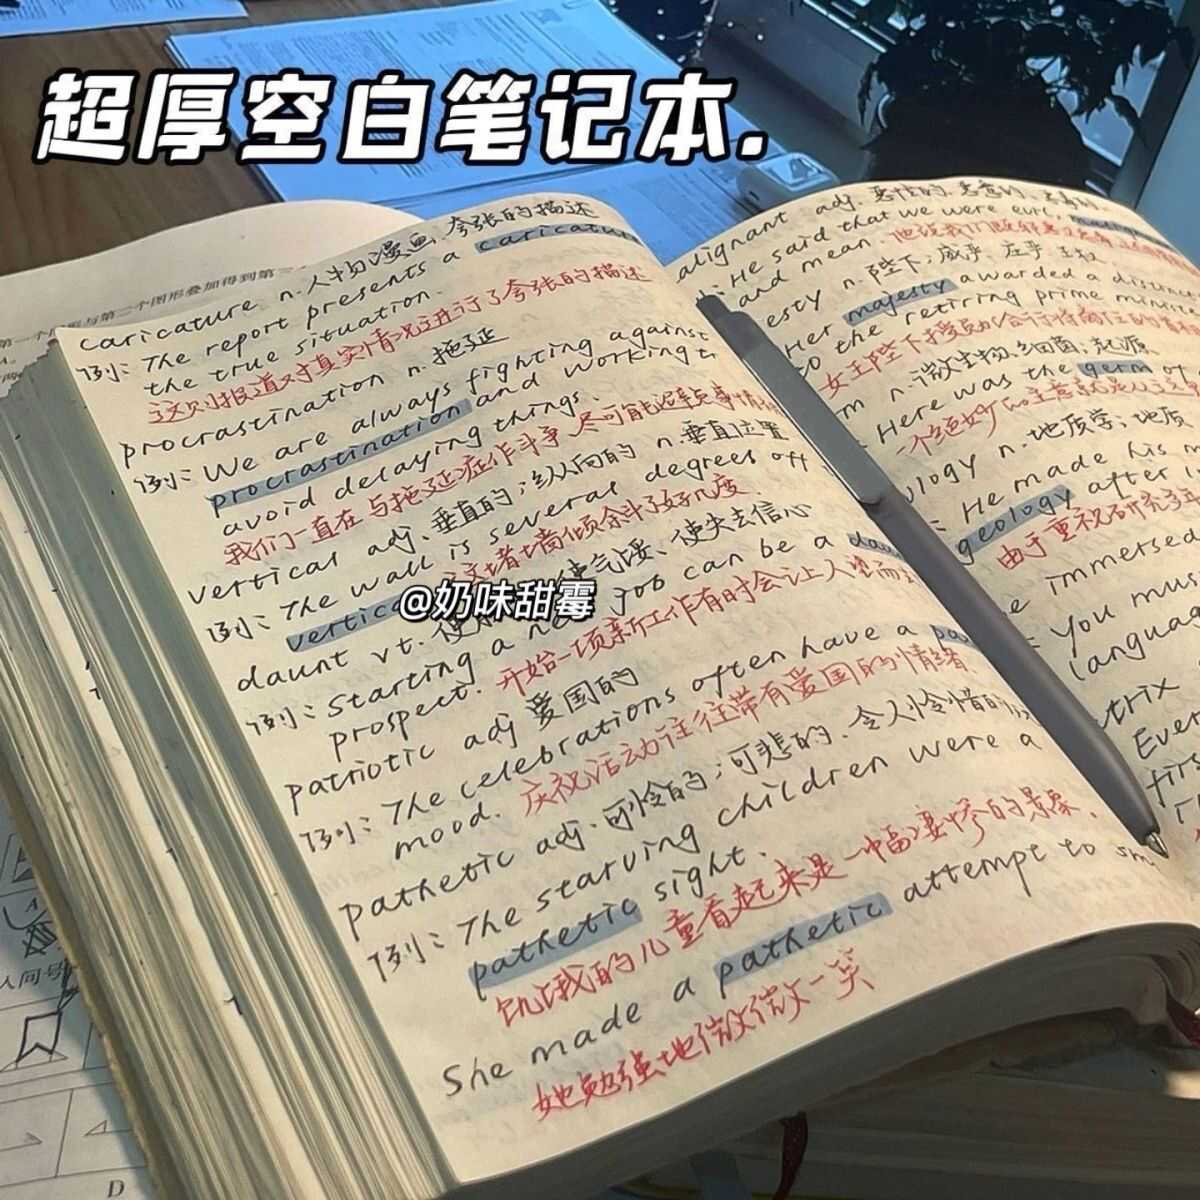 超厚空白笔记本.
caricature n.人物漫画.夸张的描述
例: The report presents a caricature
the true situation.
这则报道对真实情况进行了夸张的描述
procrastination n. 拖延
例: We are always fighting against
procrastination and working t
avoid delaying things.
我们一直在与拖延症作斗争,尽可能避免事情
vertical adj. 垂直的;纵向的 n.垂直位置
例: The wall is several degrees off
墙倾斜了好几度
daunt vt. 使气馁、使失去信心
@奶味甜霉
例: Starting a new job can be a
prospect. 开始一项新工作有时会让人望而
patriotic adj 爱国的
例: The celebrations often have a
mood. 庆祝活动往往带有爱国的情绪.
pathetic adj. 可怜的;可悲的、令人怜惜的
例: The starving children were a
pathetic sight.
饥饿的儿童看起来是一幅凄惨的景象.
She made a pathetic attempt to
她勉强地微微一笑
alignant adj. 恶性的.
He said that we were evil,
and mean.
esty n. 陛下; 威严. 庄严 王权
Her majesty awarded a
to the retiring prime
女王陛下授予
n.微生物.细菌;起源
Here was the germ of
ology n.地质学;地质
He made his
geology after
由于重视研究
immersed
You mus
languag
trix
Ever
firs
第一个图形与第二个图形叠加得到第三
D